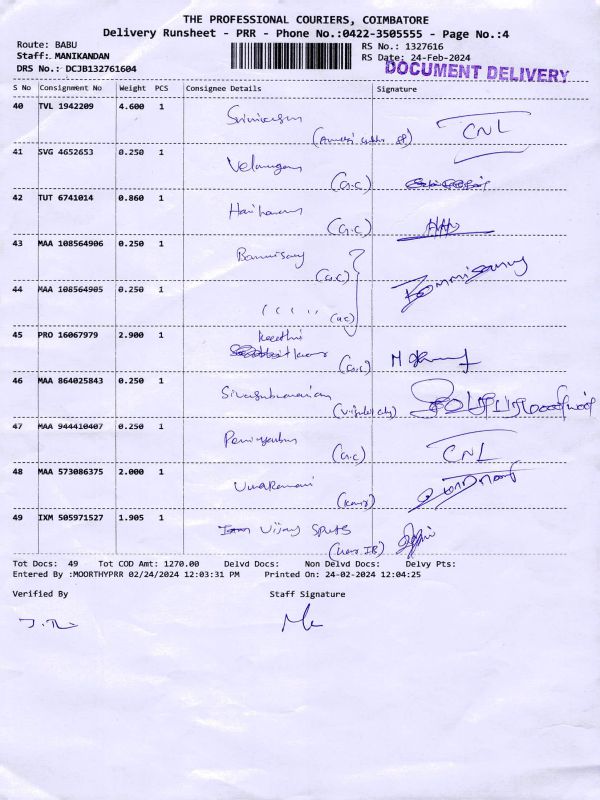 THE PROFESSIONAL COURIERS, COIMBATORE
Delivery Runsheet - PRR - Phone No.:0422-3505555 - Page No.:4
Route: BABU
Staff: MANIKANDAN
DRS No.: DCJB132761604
RS No.: 1327616
RS Date: 24-Feb-2024
DOCUMENT DELIVERY
S No Consignment No Weight PCS Consignee Details Signature
40 TVL 1942209 4.600 1 CNL
41 SVG 4652653 0.250 1 Velangan
(G.C)
42 TUT 6741014 0.860 1 Hariharan
(G.C)
43 MAA 108564906 0.250 1 Bannisamy
(G.C)
44 MAA 108564905 0.250 1
(G.C)
45 PRO 16067979 2.900 1 Keerthi
(G.C)
46 MAA 864025843 0.250 1 Sivasubramanian
47 MAA 944410407 0.250 1 CNL
(G.C)
48 MAA 573086375 2.000 1 Umaramani
49 IXM 505971527 1.905 1 Vijay Sports
Tot Docs: 49 Tot COD Amt: 1270.00 Delvd Docs: Non Delvd Docs: Delvy Pts:
Entered By :MOORTHYPRR 02/24/2024 12:03:31 PM Printed On: 24-02-2024 12:04:25
Verified By Staff Signature